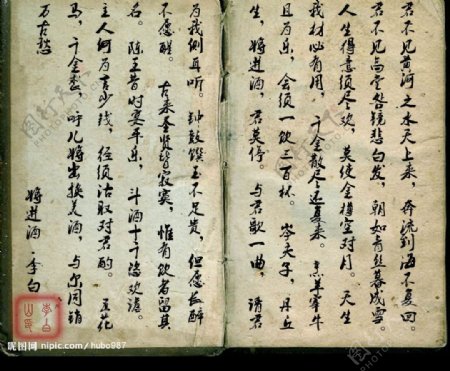 君不见黄河之水天上来，奔流到海不复回。
君不见高堂明镜悲白发，朝如青丝暮成雪。
人生得意须尽欢，莫使金樽空对月。天生
我材必有用，千金散尽还复来。烹羊宰牛
且为乐，会须一饮三百杯。岑夫子，丹丘
生，将进酒，君莫停。与君歌一曲，请君
为我侧耳听。钟鼓馔玉不足贵，但愿长醉
不愿醒。古来圣贤皆寂寞，惟有饮者留其
名。陈王昔时宴平乐，斗酒十千恣欢谑。
主人何为言少钱，径须沽取对君酌。五花
马，千金裘，呼儿将出换美酒，与尔同销
万古愁
将进酒·李白
昵图网 nipic.com/hubo987